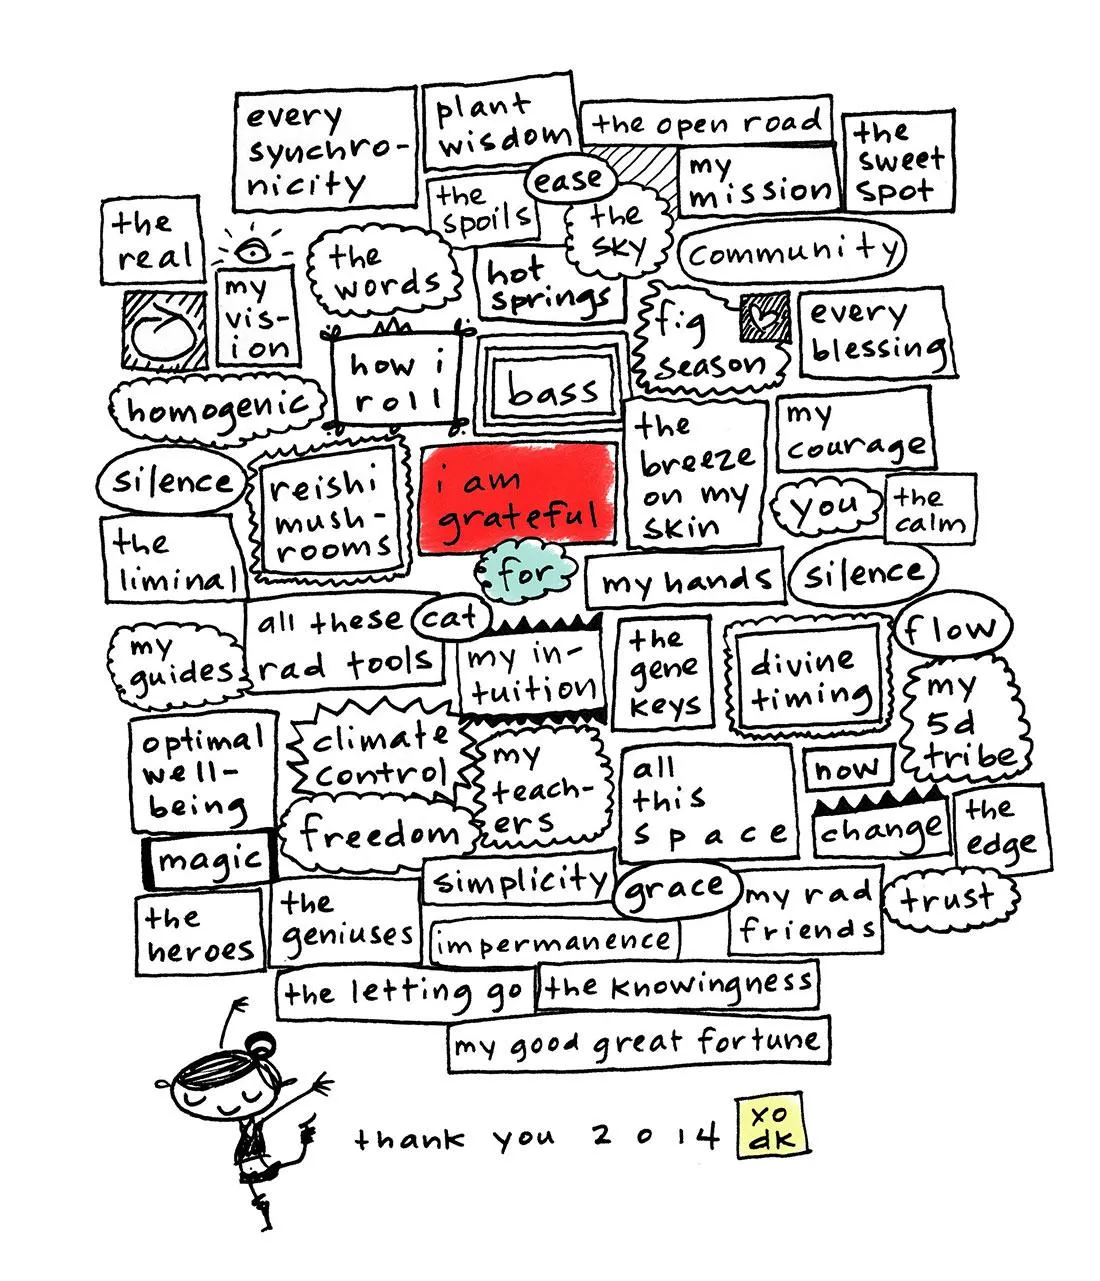 every
synchro-
nicity
plant
wisdom
the open road
the
sweet
spot
my
mission
ease
the
spoils
the
sky
community
the
real
my
vis-
ion
the
words
hot
springs
fig
season
every
blessing
how i
roll
bass
homogenic
the
breeze
on my
skin
my
courage
silence
reishi
mush-
rooms
i am
grateful
you
the
calm
the
liminal
for
my hands
silence
all these
rad tools
cat
my
guides
my in-
tuition
the
gene
keys
divine
timing
flow
my
5d
tribe
optimal
well-
being
climate
control
my
teach-
ers
all
this
space
now
change
the
edge
freedom
magic
simplicity
grace
my rad
friends
trust
the
heroes
the
geniuses
impermanence
the letting go
the knowingness
my good great fortune
thank you 2014
xo
dk